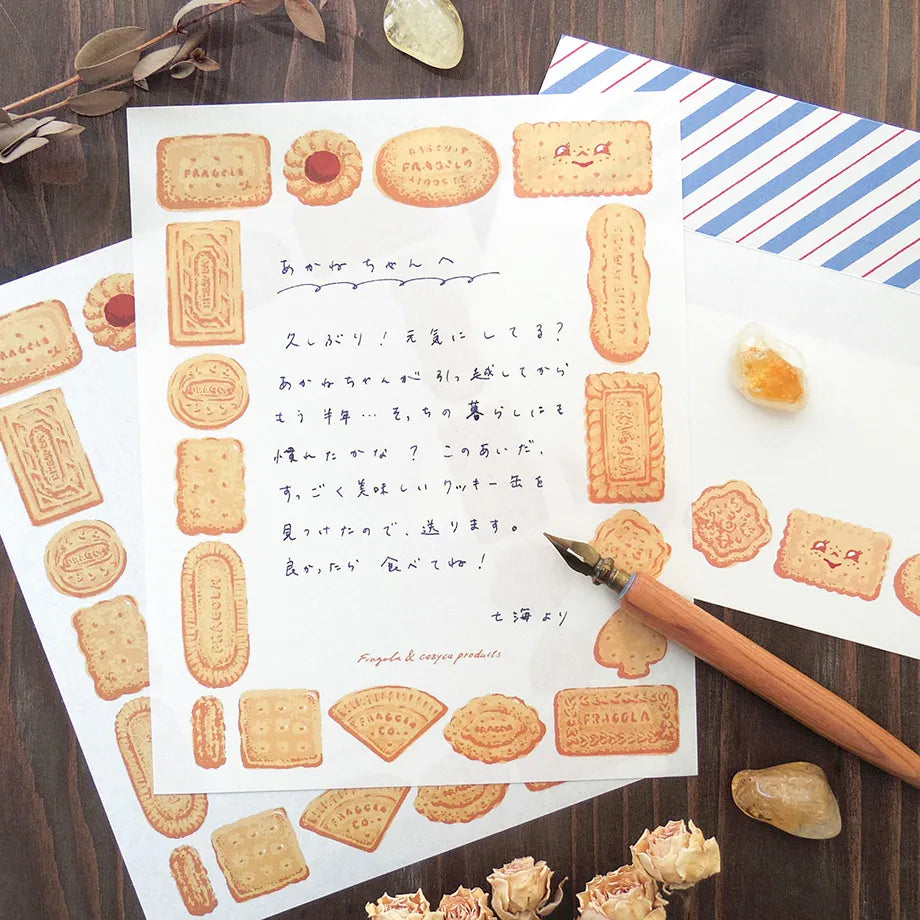 FRAGOLA
FRAGOLA
あかねちゃんへ
久しぶり！元気にしてる？
あかねちゃんが引っ越してから
もう半年…そっちの暮らしにも
慣れたかな？このあいだ、
すっごく美味しいクッキー缶を
見つけたので、送ります。
良かったら食べてね！
七海より
Fragola & cozyca products
FRAGOLA
FRAGOLA
FRAGOLA
FRAGOLA CO.
FRAGOLA
FRAGOLA
FRAGOLA
FRAGOLA CO.